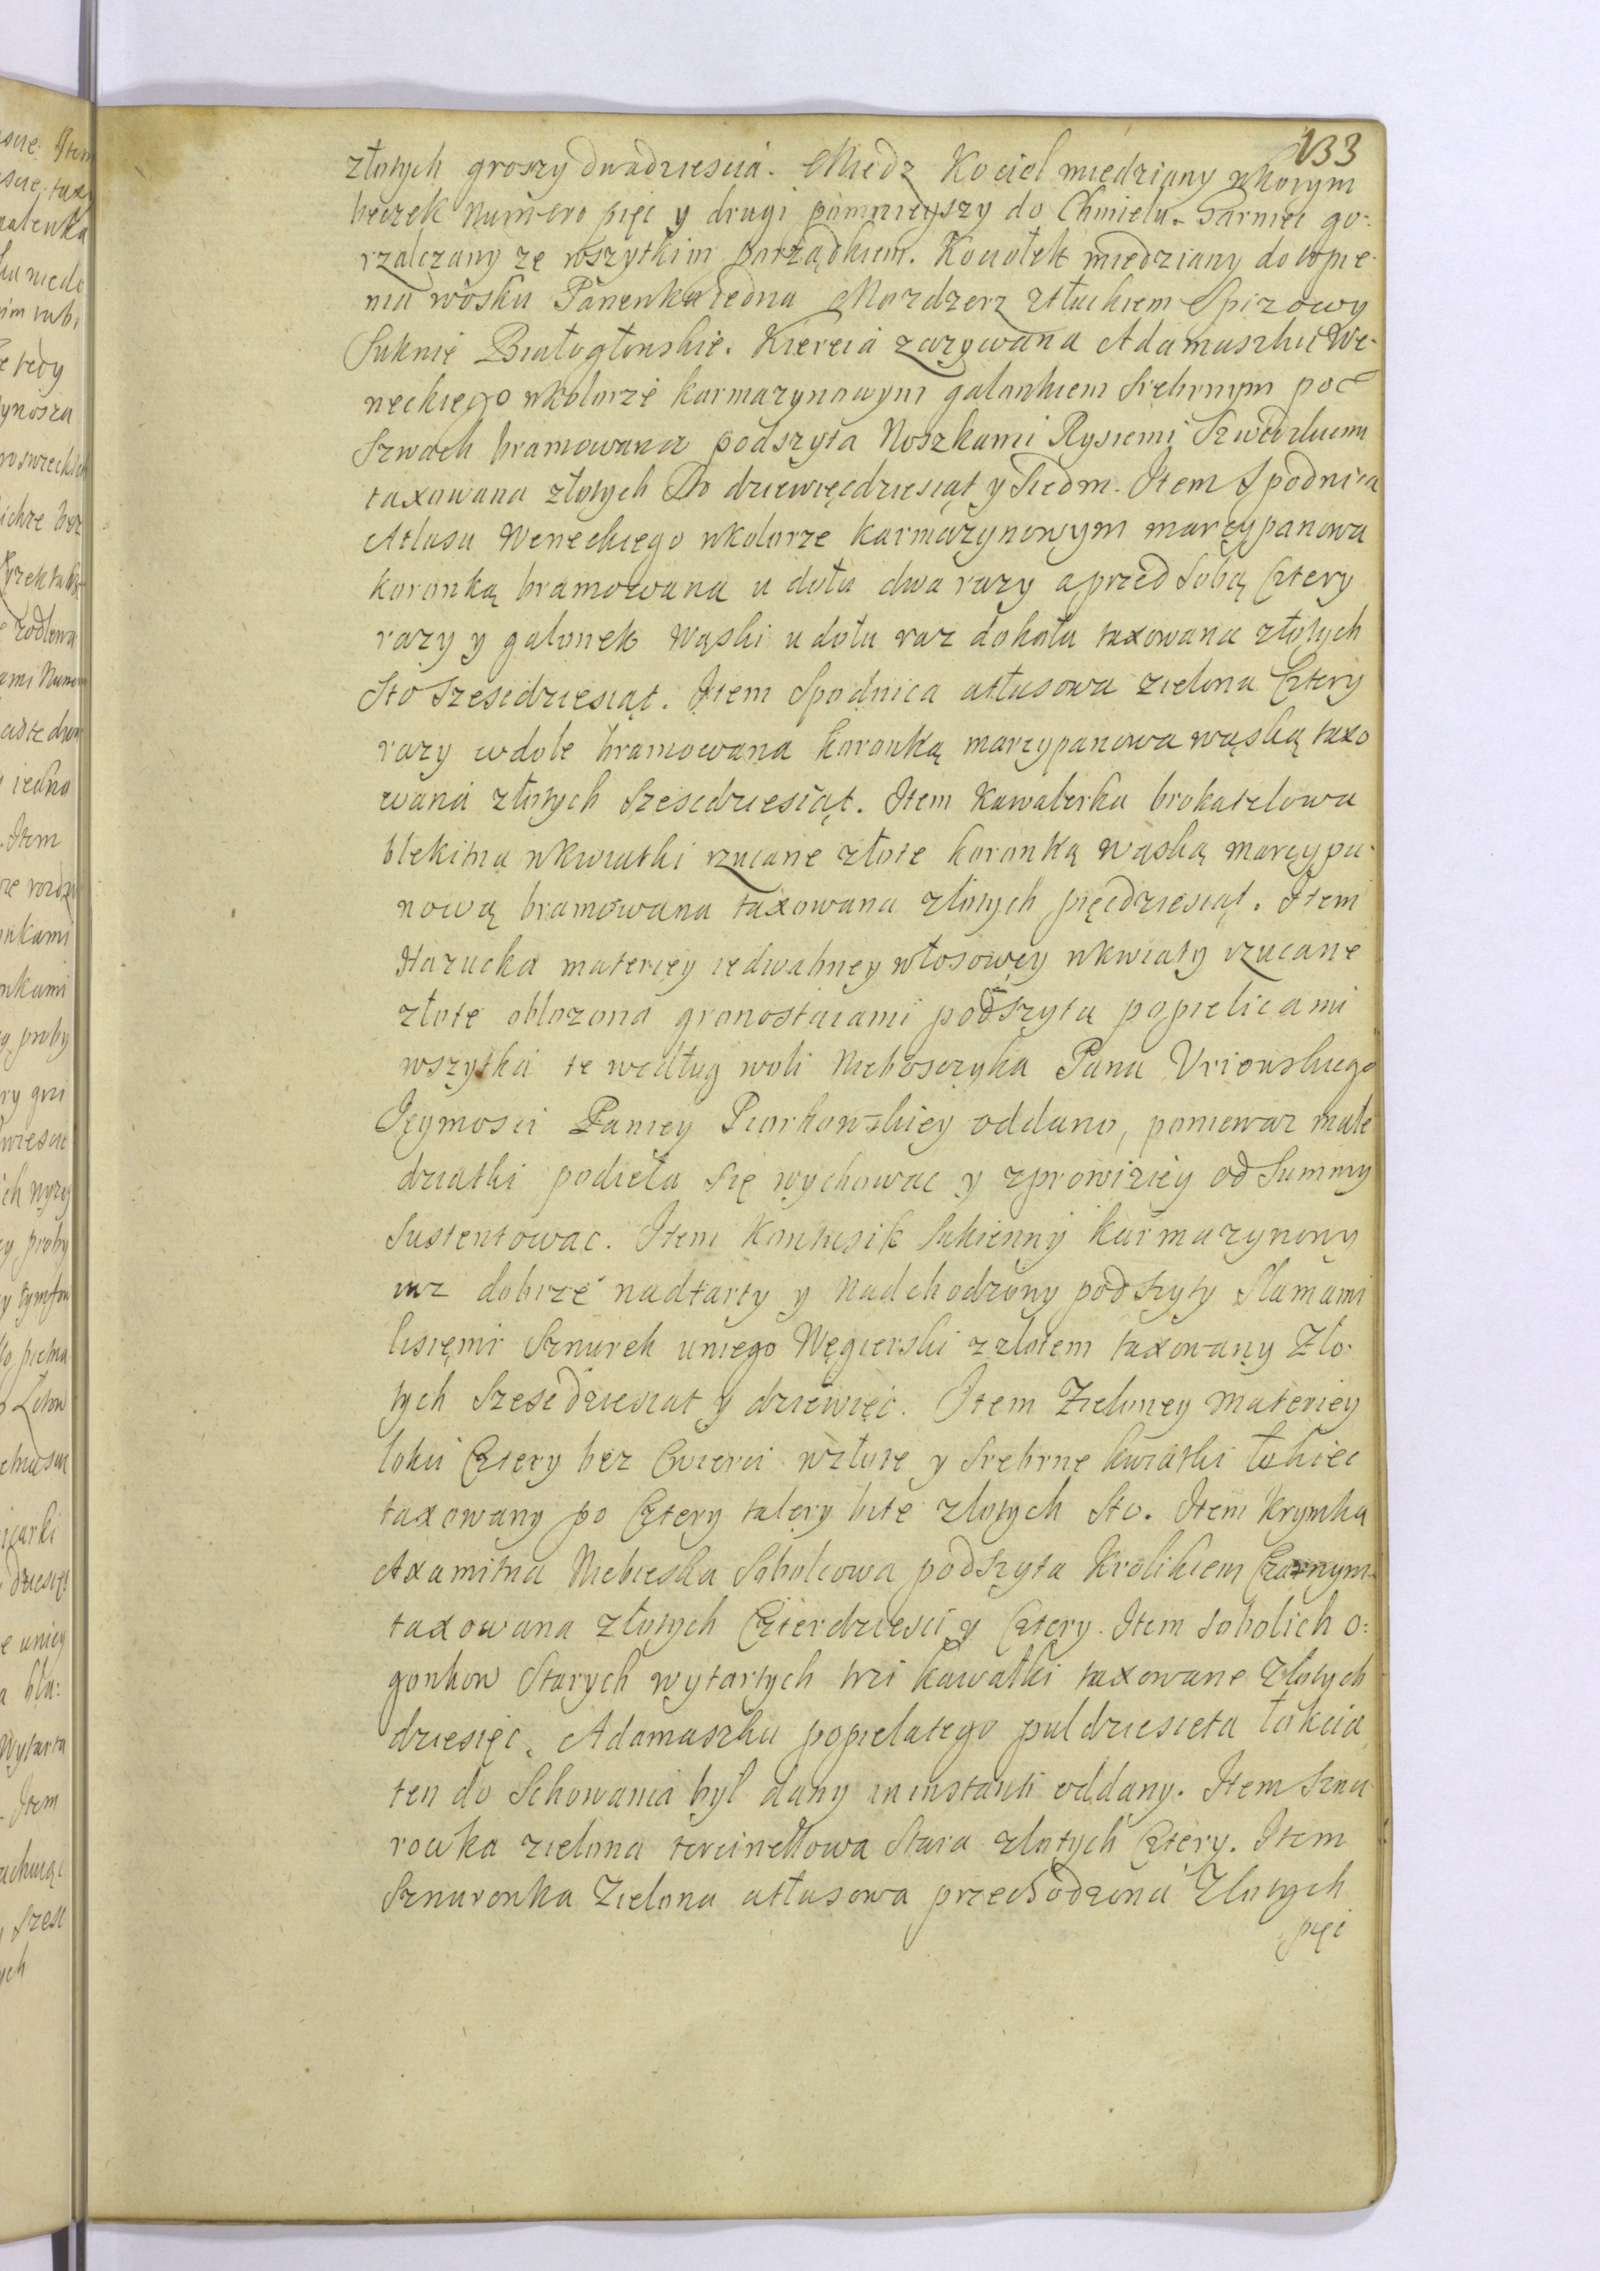 133
złotych groszy dwadziescia. Miedz Kocioł miedziany wktorym
beczek Numero pięc y drugi pomnieyszy do Chmielu. Garniec go:
rzalczany ze wszytkim porządkiem. Kociołek miedziany do topie-
nia wosku Panewka iedna Mozdzerz ztłuckiem Spizowy
Suknie Białogłonskie. Kiereia zazywana Adamaszku We-
neckiego wkolorze karmazynowym galonkiem srebrnym po
Szwach bramowana podszyta Noszkami Rysiemi Szwedzkiemi
taxowana złotych Sto dziewięcdziesiąt y Siedm. Item Spodnica
Atlasu Weneckiego wkolorze karmazynowym marcypanowa
koronką bramowana u dołu dwa razy a przed sobą Cztery
razy y galonek wąski u dołu raz dokoła taxowana złotych
Sto Szescdziesiąt. Item Spodnica atłasowa zielona Cztery
razy wdole bramowana koronką marcypanowa wąską taxo
wana złotych Szescdziesiąt. Item Kawalerka brokatelowa
błekitna wkwiatki rzucane złote koronką wąską marcypa-
nową bramowana taxowana złotych pięcdziesiąt. Item
Hazucka materiey iedwabney włosowey wkwiaty rzucane
złote obłozona gronostaiami podszyta popielicami
wszytka te według woli Nieboszczyka Pana
Jeymosci Paniey Piorkowskiey oddano, poniewaz małe
dziatki podieła się wychowac y zprowiziey od Summy
Sustentowac. Item Kontusik Sukienny karmazynowy
iuz dobrze nadtarty y Nadchodzony podszyty Slamami
lisięmi Sznurek uniego Węgierski zzlotem taxowany Zło-
tych Szescdziesiat y dziewięc. Item Zieloney Materiey
łokci Cztery bez Cwierci wzłote y Srebrne kwiatki łokiec
taxowany po Cztery talery bite złotych Sto. Item Krymka
Axamitna Niebieska Sobolcowa podszyta Krolikiem Czarnym
taxowana złotych Czterdziesci y Cztery. Item sobolich o:
gonkow Starych wytartych trzi kawałki taxowane Złotych
dziesięc. Adamaszku popielatego puldziesieta łokcia
ten do Schowania był dany in instanti oddany. Item Sznu
rowka zielona tercinellowa Stara złotych Cztery. Item
Sznurowka Zielona atłasowa przechodzona Złotych
pięc